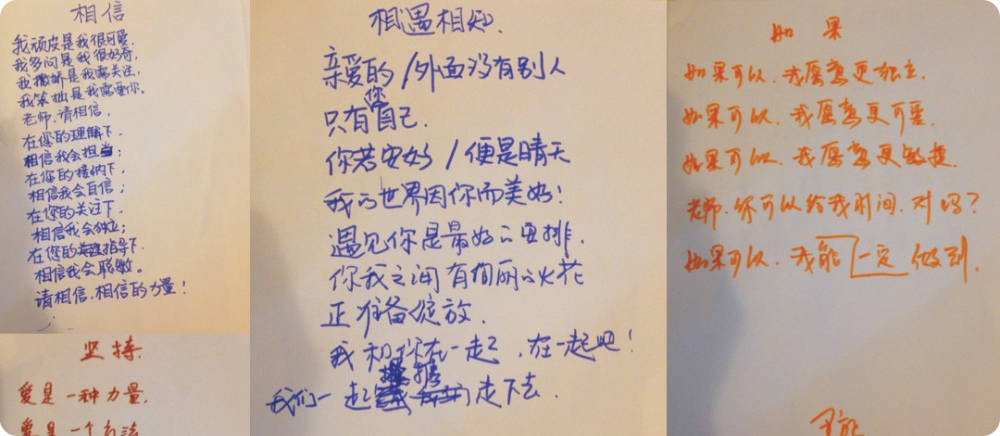 相信
我顽皮是我很可爱,
我多问是我很好奇,
我撒娇是我需关注,
我笨拙是我需要你。
老师,请相信,
在您的理解下,
相信我会担当;
在您的接纳下,
相信我会自信;
在您的关注下,
相信我会独立;
在您的指导下,
相信我会聪敏。
请相信,相信的力量!
坚持
爱是一种力量,
爱是一个方法
相遇相知.
亲爱的/外面没有别人
只有您自己.
你若安好/便是晴天
我的世界因你而美好!
遇见你是最好的安排.
你我之间有绚丽的火花
正准备绽放.
我和你在一起,在一起吧!
我们一起携手走下去.
如果
如果可以,我愿意更独立.
如果可以,我愿意更可爱.
如果可以,我愿意更敏捷.
老师,你可以给我时间,对吗?
如果可以,我能一定做到.